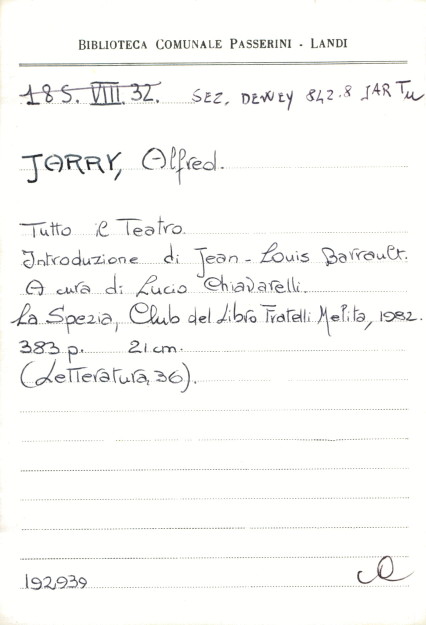 BIBLIOTECA COMUNALE PASSERINI - LANDI
185. VIII. 32. SEZ. DEWEY 842.8 JAR Tu
JARRY, Alfred.
Tutto il Teatro.
Introduzione di Jean-Louis Barrault.
A cura di Lucio Chiavarelli.
La Spezia, Club del Libro Fratelli Melita, 1982.
383 p. 21 cm.
(Letteratura, 36).
192939